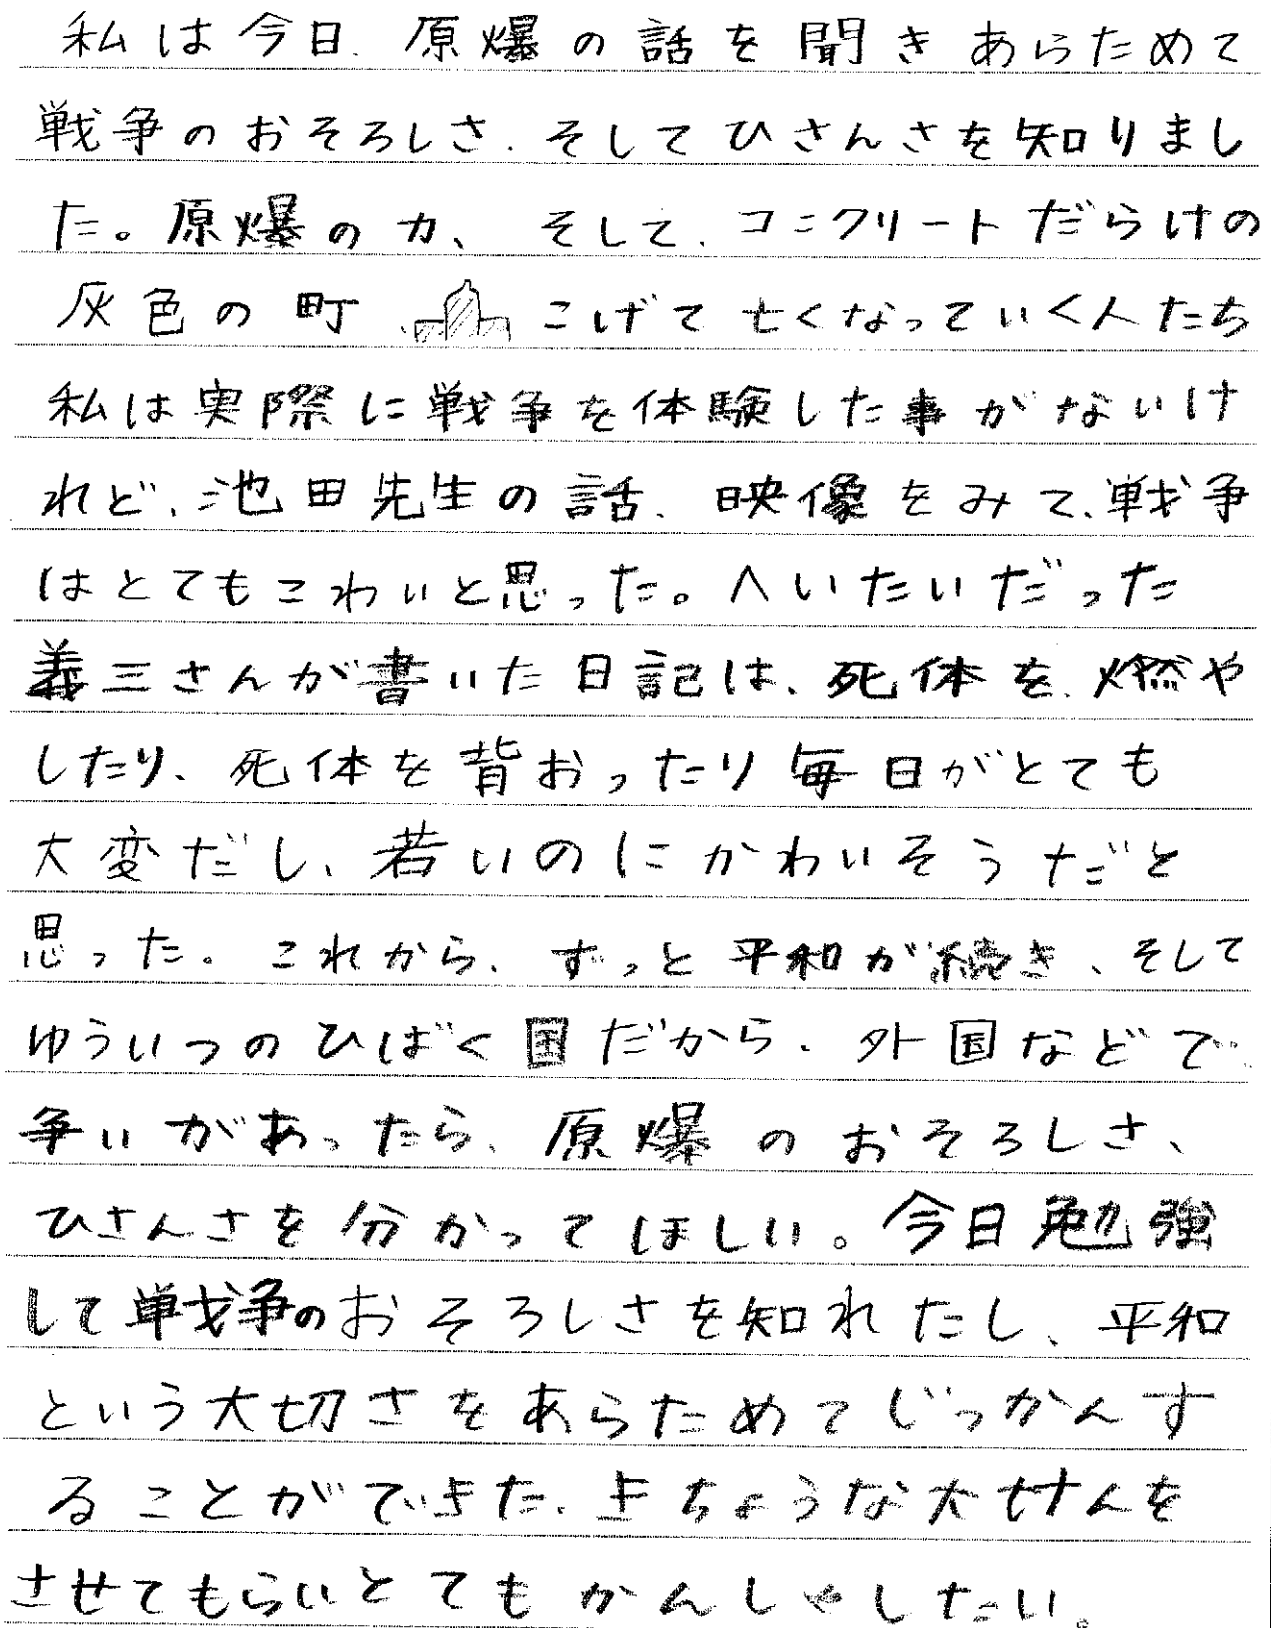 私は今日、原爆の話を聞きあらためて
戦争のおそろしさ、そしてひさんさを知りまし
た。原爆の力、そして、コンクリートだらけの
灰色の町 こげて亡くなっていく人たち
私は実際に戦争を体験した事がないけ
れど、池田先生の話、映像をみて、戦争
はとてもこわいと思った。へいたいだった
義三さんが書いた日記は、死体を、燃や
したり、死体を背おったり毎日がとても
大変だし、若いのにかわいそうだと
思った。これから、ずっと平和が続き、そして
ゆういつのひばく国だから、外国などで
争いがあったら、原爆のおそろしさ、
ひさんさを分かってほしい。今日勉強
して戦争のおそろしさを知れたし、平和
という大切さをあらためてじっかんす
ることができた、きちょうな大けんを
させてもらいとてもかんしゃしたい。